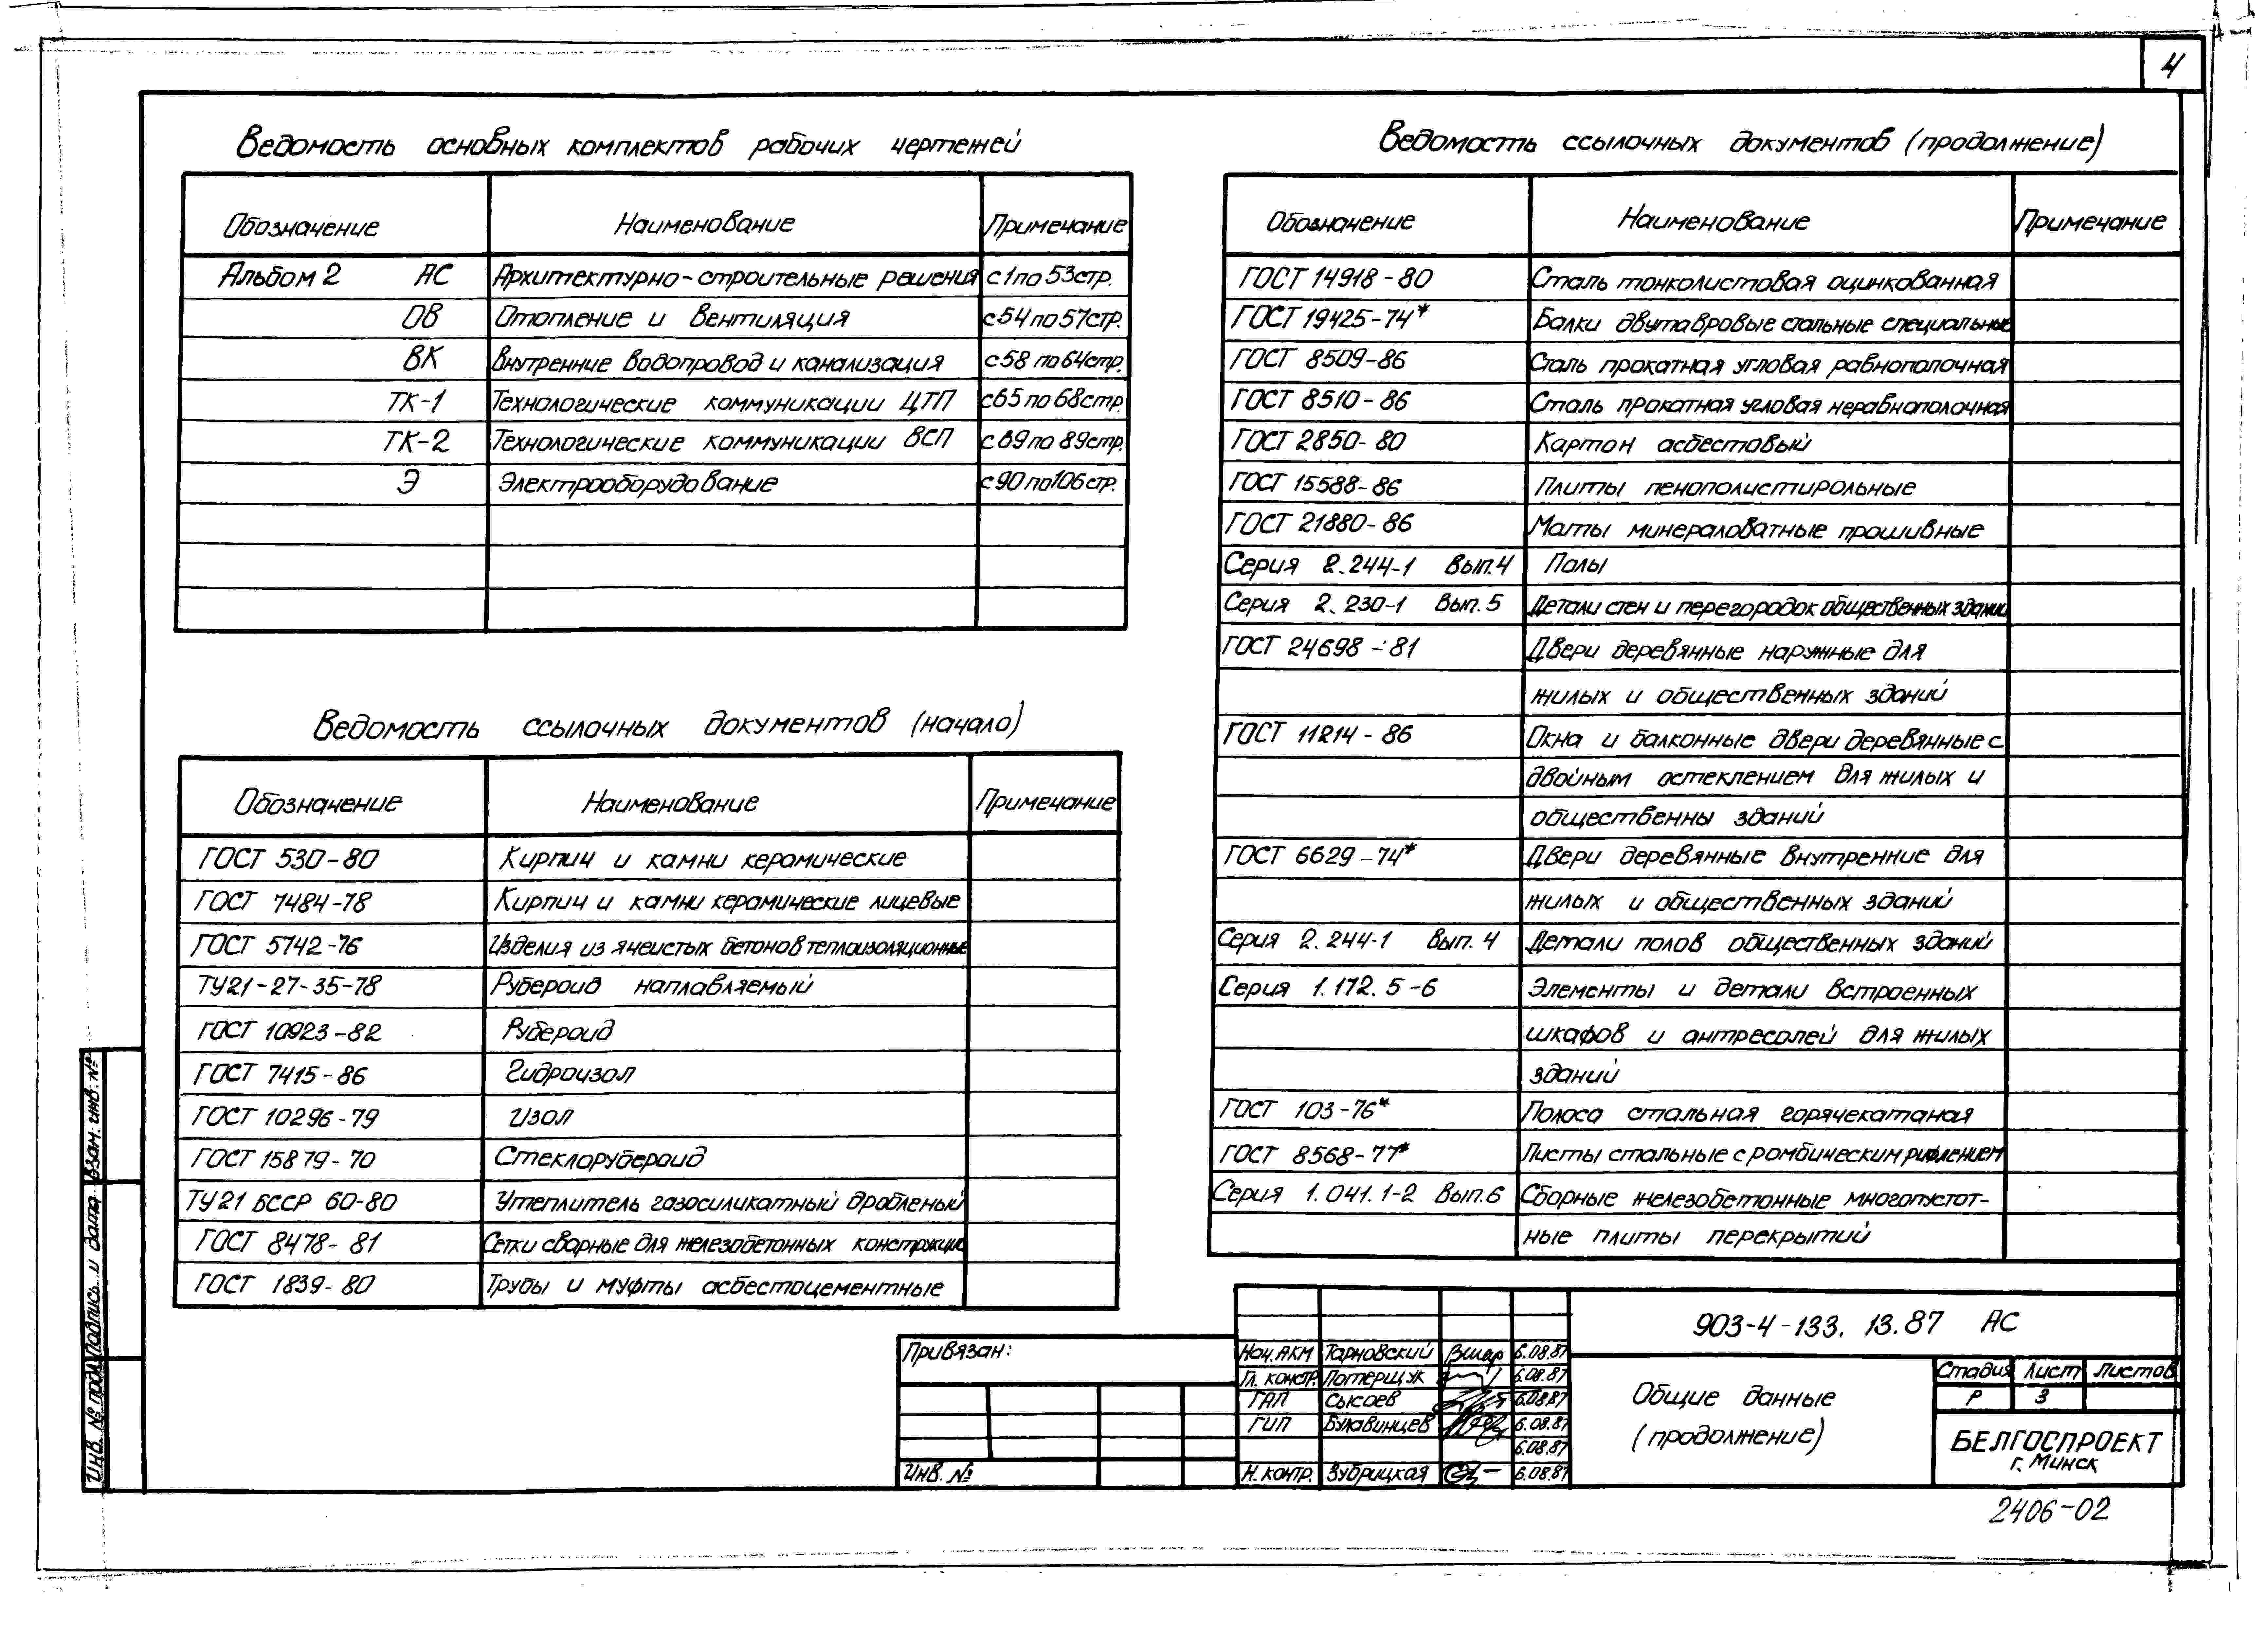 4
Ведомость основных комплектов рабочих чертежей
Обозначение Наименование Примечание
Альбом 2 АС Архитектурно-строительные решения с 1 по 53 стр.
ОВ Отопление и вентиляция с 54 по 57 стр.
ВК Внутренние водопровод и канализация с 58 по 64 стр.
ТК-1 Технологические коммуникации ЦТП с 65 по 68 стр.
ТК-2 Технологические коммуникации ВСП с 69 по 89 стр.
Э Электрооборудование с 90 по 106 стр.
Ведомость ссылочных документов (начало)
Обозначение Наименование Примечание
ГОСТ 530-80 Кирпич и камни керамические
ГОСТ 7484-78 Кирпич и камни керамические лицевые
ГОСТ 5742-76 Изделия из ячеистых бетонов теплоизоляционные
ТУ21-27-35-78 Рубероид наплавляемый
ГОСТ 10923-82 Рубероид
ГОСТ 7415-86 Гидроизол
ГОСТ 10296-79 Изол
ГОСТ 15879-70 Стеклорубероид
ТУ21 БССР 60-80 Утеплитель газосиликатный дробленый
ГОСТ 8478-81 Сетки сварные для железобетонных конструкций
ГОСТ 1839-80 Трубы и муфты асбестоцементные
Ведомость ссылочных документов (продолжение)
Обозначение Наименование Примечание
ГОСТ 14918-80 Сталь тонколистовая оцинкованная
ГОСТ 19425-74* Балки двутавровые стальные специальные
ГОСТ 8509-86 Сталь прокатная угловая равнополочная
ГОСТ 8510-86 Сталь прокатная угловая неравнополочная
ГОСТ 2850-80 Картон асбестовый
ГОСТ 15588-86 Плиты пенополистирольные
ГОСТ 21880-86 Маты минераловатные прошивные
Серия 2.244-1 Вып.4 Полы
Серия 2.230-1 Вып.5 Детали стен и перегородок общественных зданий
ГОСТ 24698-81 Двери деревянные наружные для
жилых и общественных зданий
ГОСТ 11214-86 Окна и балконные двери деревянные с
двойным остеклением для жилых и
общественны зданий
ГОСТ 6629-74* Двери деревянные внутренние для
жилых и общественных зданий
Серия 2.244-1 Вып. 4 Детали полов общественных зданий
Серия 1.172.5-6 Элементы и детали встроенных
шкафов и антресолей для жилых
зданий
ГОСТ 103-76* Полоса стальная горячекатаная
ГОСТ 8568-77* Листы стальные с ромбическим рифлением
Серия 1.041.1-2 Вып.6 Сборные железобетонные многопустот-
ные плиты перекрытий
Привязан:
Инв. №
Нач. АКМ Тарновский 6.08.87
Гл. констр. Потерщук 6.08.87
ГАП Сысоев 6.08.87
ГИП Булавинцев 6.08.87
6.08.87
Н. контр. Зубрицкая 6.08.87
903-4-133.13.87 АС
Общие данные
(продолжение)
Стадия Лист Листов
Р 3
БЕЛГОСПРОЕКТ
г. Минск
2406-02
Инв. № подл. Подпись и дата Взам. инв. №